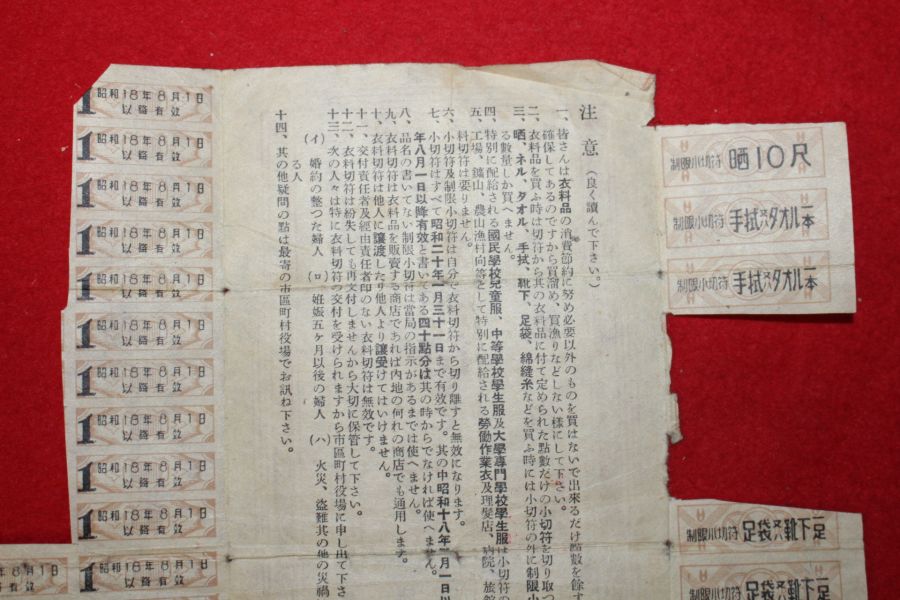 制限小切符 晒10尺
制限小切符 手拭又ハタオル一本
制限小切符 手拭又ハタオル一本
制限小切符 足袋又ハ靴下一足
制限小切符 足袋又ハ靴下一足
注意（良く讀んで下さい。）
一、皆さんは衣料品の消費節約に努め必要以外のものを買はないで出來るだけ點數を餘す
確保してあるのですから買溜め、買漁りなどしない樣にして下さい。
二、衣料品を買ふ時は切符から其の衣料品に付て定められた點數だけの小切符を切り取つ
三、晒、ネル、タオル、手拭、靴下、足袋、綿縫糸などを買ふ時には小切符の外に制限小
る數量しか買へません。
四、特別に配給される國民學校兒童服、中等學校學生服及大學專門學校學生服は小切符の
五、工場、鑛山、農山漁村向等として特別に配給される勞働作業衣及理髮店、病院、旅館
料切符は要りません。
六、小切符及制限小切符は自分で衣料切符から切り離すと無效になります。
七、小切符はすべて昭和二十年一月三十一日まで有效です。其の中昭和十八年八月一日以
年八月一日以降有效と書いてある四十點分は其の時からでなければ使へません。
八、品名の書いてない制限小切符は當局の指示があるまでは使へません。
九、衣料切符は衣料品を販賣する商店であれば內地の何れの商店でも通用します。
十、衣料切符は他人に讓渡したり他人より讓受けてはいけません。
十一、交付責任者及經由責任者印のない衣料切符は無效です。
十二、衣料切符は紛失しても再交付しませんから大切に保管して下さい。
十三、次の人々は特に衣料切符の交付を受けられますから市區町村役場に申し出て下さ
（イ）婚約の整つた婦人（ロ）姙娠五ヶ月以後の婦人（ハ）火災、盜難其の他の災禍
る人
十四、其の他疑問の點は最寄の市區町村役場でお訊ね下さい。
1 昭和18年8月1日
以降有效
1 昭和18年8月1日
以降有效
1 昭和18年8月1日
以降有效
1 昭和18年8月1日
以降有效
1 昭和18年8月1日
以降有效
1 昭和18年8月1日
以降有效
1 昭和18年8月1日
以降有效
1 昭和18年8月1日
以降有效
1 昭和18年8月1日
以降有效
1 昭和18年8月1日
以降有效
1 昭和18年8月1日
以降有效
年8月1日
有效